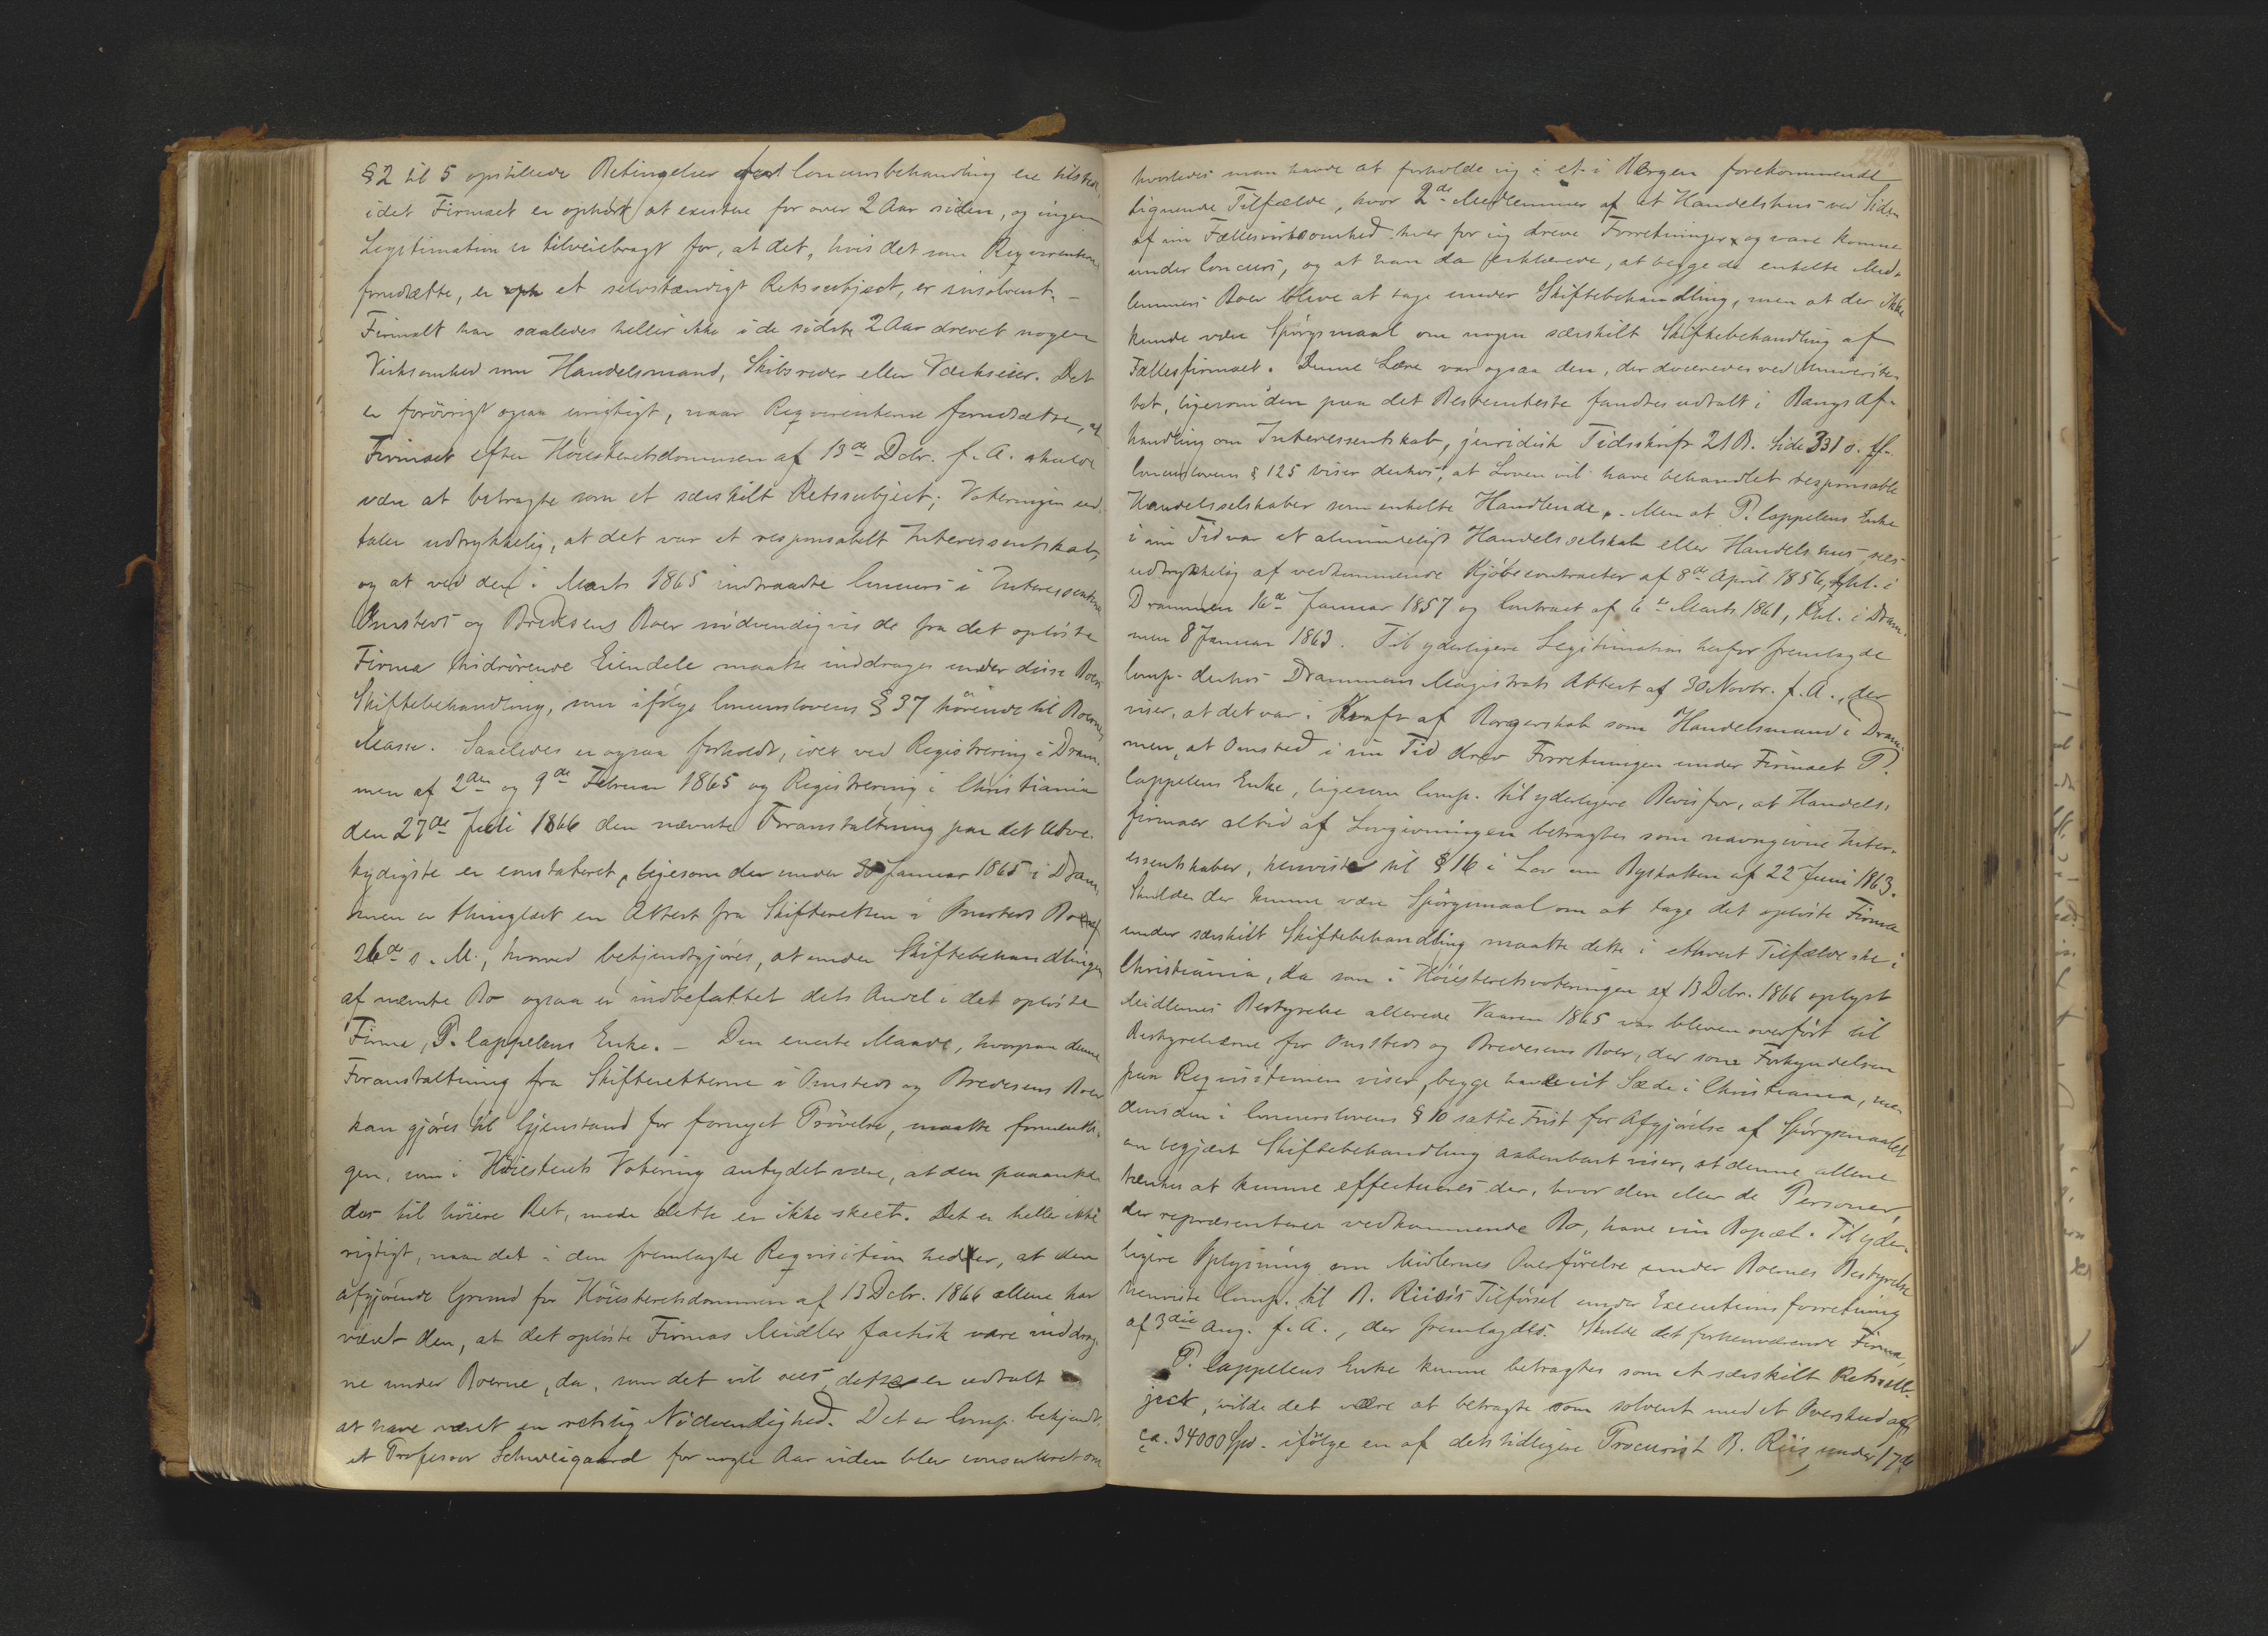 §2 til 5 opstillede Betingelser for Concursbehandling ere tilstede,
idet Firmaet er ophørt at existere for over 2 Aar siden, og ingen
Legitimation er tilveiebragt for, at det, hvis det som Reqvirenterne
forudsætte, er et selvstændigt Retssubject, er insolvent. –
Firmaet har saaledes heller ikke i de sidste 2 Aar drevet nogen
Virksomhed som Handelsmand, Skibsreder eller Værkseier. Det
er forövrigt ogsaa urigtigt, naar Reqvirenterne forudsætte, at
Firmaet efter Höiesteretsdommen af 13de Dcbr. f. A. skulde
være at betragte som et særskilt Retssubject; Voteringen ud-
taler udtrykkelig, at det var et responsabelt Interessentskab,
og at ved den i Marts 1865 indtraadte Concurs i Interessenterne
Omsteds og Bredesens Boer nödvendigvis de fra det oplöste
Firma hidrörende Eiendele maatte inddrages under disse Boers
Skiftebehandling, som ifölge Concurslovens § 37 hörende til Boernes
Masse. Saaledes er ogsaa forholdt, idet ved Registrering i Dram-
men af 2den og 9de Februar 1865 og Registrering i Christiania
den 27de Juli 1866 den nævnte Foranstaltning paa det utve-
tydigste er constateret, ligesom der under 30 Januar 1865 i Dram-
men er thinglæst en Attest fra Skifteretten i Omsteds Bo af
26de s. M., hvorved bekjendtgjöres, at under Skiftebehandlingen
af nævnte Bo ogsaa er indbefattet dets Andel i det oplöste
Firma, P. Cappelens Enke. – Den eneste Maade, hvorpaa denne
Foranstaltning fra Skifteretterne i Omsteds og Bredesens Boer
kan gjöres til Gjenstand for fornyet Prövelse, maatte formentli-
gen, som i Höiesterets Votering antydet være, at den paaanke-
des til höiere Ret, mede dette er ikke skeet. Det er heller ikke
rigtigt, naar det i den fremlagte Reqvisition hedder, at den
afgjörende Grund for Höiesteretsdommen af 13 Dcbr. 1866 allene har
været den, at det oplöste Firmas Midler factisk vare inddrag-
ne under Boerne, da, som det vil sees, dette er udtalt
at have været en retslig Nödvendighed. Det er Comp. bekjendt,
at Professor Schweigaard for nogle Aar siden blev consuleret om
hvorledes man havde at forholde sig i et i Bergen forekommende
lignende Tilfælde, hvor 2de Medlemmer af et Handelshus ved Siden
af sin Fællesvirksomhed hver for sig dreve Forretninger og vare komne
under Concurs, og at han da erklærede, at begge de enkelte Med-
lemmers Boer bleve at tage under Skiftebehandling, men at der ikke
kunde være Spörgsmaal om nogen særskilt Skiftebehandling af
Fællesfirmaet. Denne Lære var ogsaa den, der doceredes ved Universite-
tet, ligesom den paa det Bestemteste fandtes udtalt i Bangs Af-
handling om Interessentskab, juridisk Tidsskrift 21 B. Side 331 o. ff.
Concurslovens § 125 viser derhos, at Loven vil have behandlet responsable
Handelsselskaber som enkelte Handlende. – Men at P. Cappelens Enke
i sin Tid var et almindeligt Handelsselskab eller Handelshus, sees
udtrykkelig af vedkommende Kjöbecontracter af 8de April 1856, thl. i
Drammen 16de Januar 1857 og Contract af 6te Marts 1861, thl. i Dram-
men 8 Januar 1863. Til yderligere Legitimation herfor fremlagde
Comp. derhos Drammens Magistrats Attest af 30 Novbr. f. A., der
viser, at det var i Kraft af Borgerskab som Handelsmand i Dram-
men, at Omsted i sin Tid drev Forretningen under Firmaet P.
Cappelens Enke, ligesom Comp. til yderligere Bevis for, at Handels-
firmaer altid af Lovgivningen betragtes som navngivne Inter-
essentskaber, henviste til § 16 i Lov om Byskatten af 22 Juni 1863.
Skulde der kunne være Spörgsmaal om at tage det oplöste Firma
under særskilt Skiftebehandling maatte dette i ethvert Tilfælde ske i
Christiania, da som i Höiesteretsvoteringen af 13 Dcbr. 1866 oplyst
Midlernes Bestyrelse allerede Vaaren 1865 var bleven overfört til
Bestyrelserne for Omsteds og Bredesens Boer, der som Forkyndelsen
paa Reqvisitionen viser, begge have sit Sæde i Christiania, me-
dens den i Concurslovens § 10 satte Frist for Afgjörelse af Spörgsmaalet
om begjært Skiftebehandling aabenbart viser, at denne allene
tænkes at kunne effectueres der, hvor den eller de Personer,
der repræsenterer vedkommende Bo, have sin Bopæl. Til yder-
ligere Oplysning om Midlernes Overförelse under Boernes Bestyrelse
henviste Comp. til B. Riis's Tilförsel under Executionsforretning
af 3die Aug. f. A., der fremlagdes. Skulde det forhenværende Firma,
P. Cappelens Enke kunne betragtes som et særskilt Retssub-
ject, vilde det være at betragte som solvent med et Overskud af
ca. 34000 Spd. ifölge en af dets tidligere Procurist B. Riis, under 17de